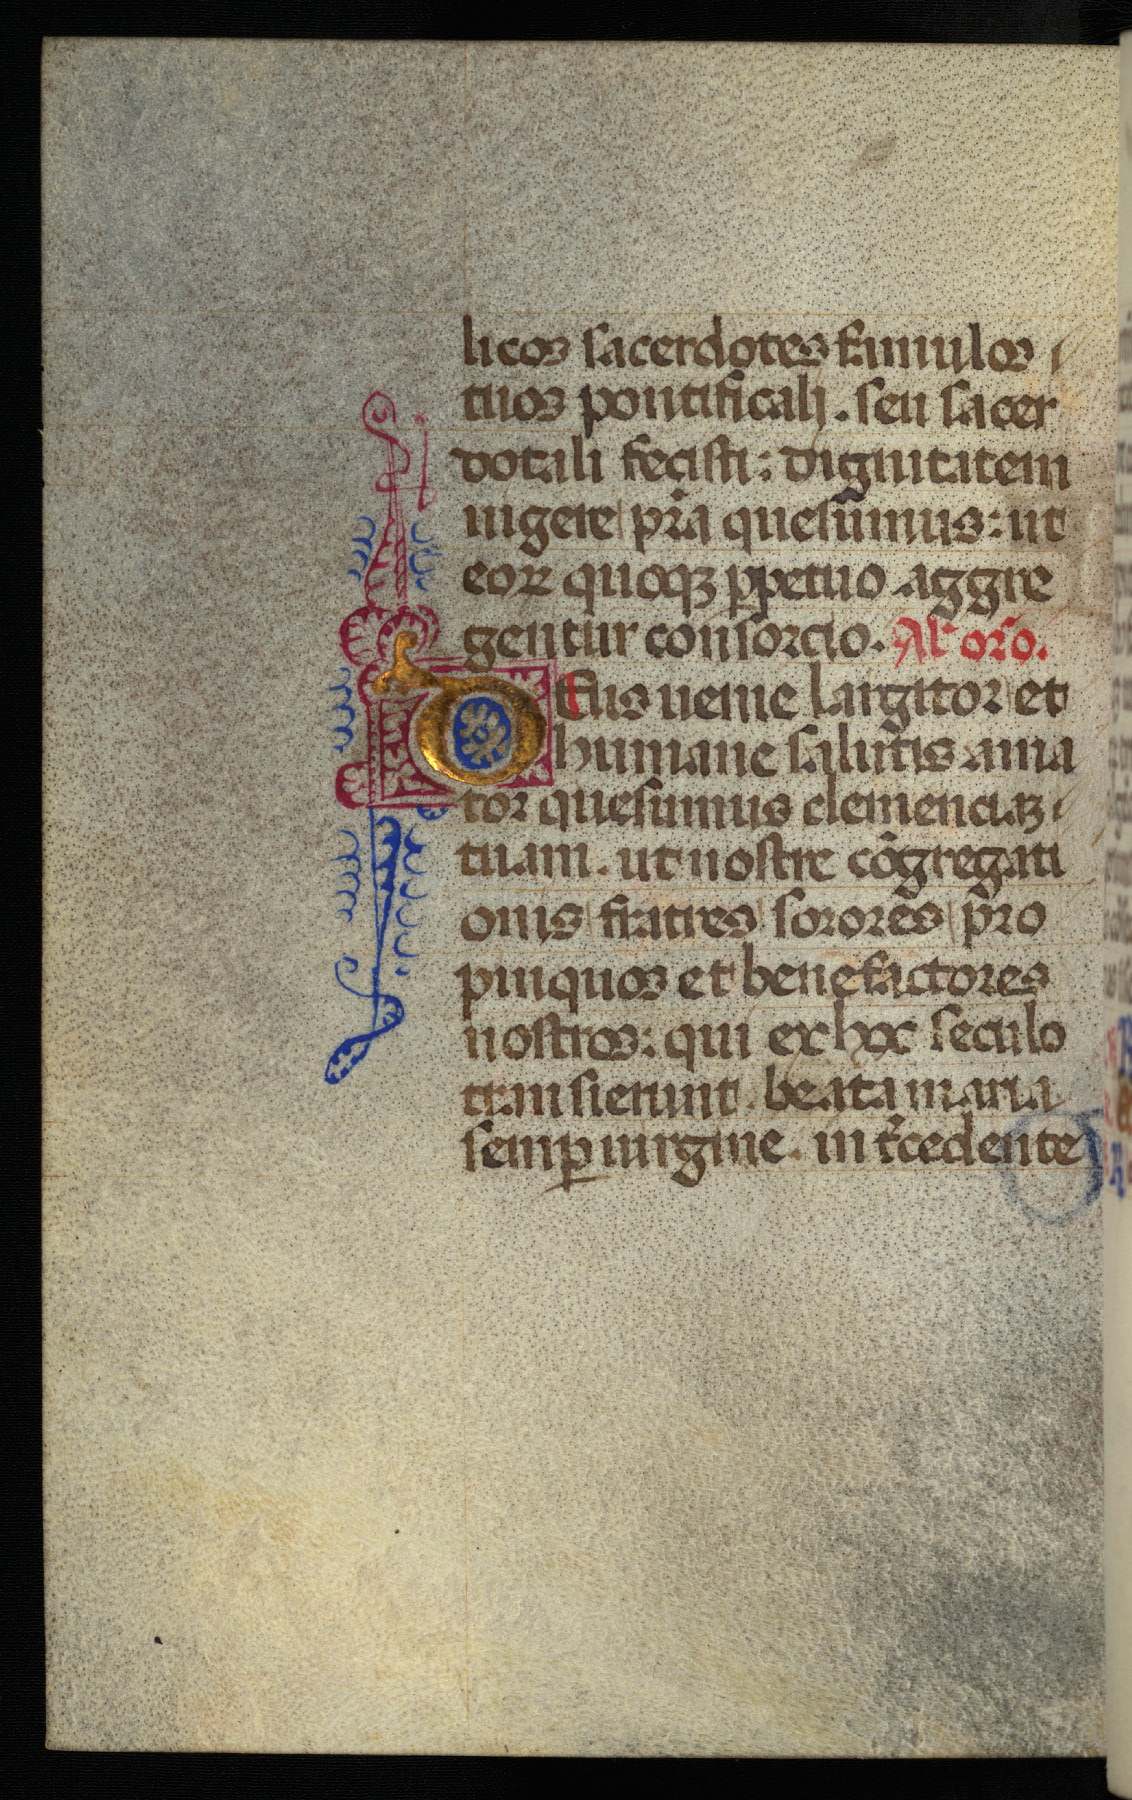 licos sacerdotes famulos
tuos pontificali. seu sacer
dotali fecisti: dignitatem
uigere p̄ra quesumus: ut
eor quoqꝫ ꝑpetuo aggre
gentur consorcio. Al' or̄o.
Deus uenie largitor et
humane salutis ama
tor quesumus clemenciaꝫ
tuam. ut nostre cōgregati
onis fratres sorores pro
pinquos et benefactores
nostros: qui ex hoc seculo
transierunt. beata maria
semꝑ uirgine. int'cedente